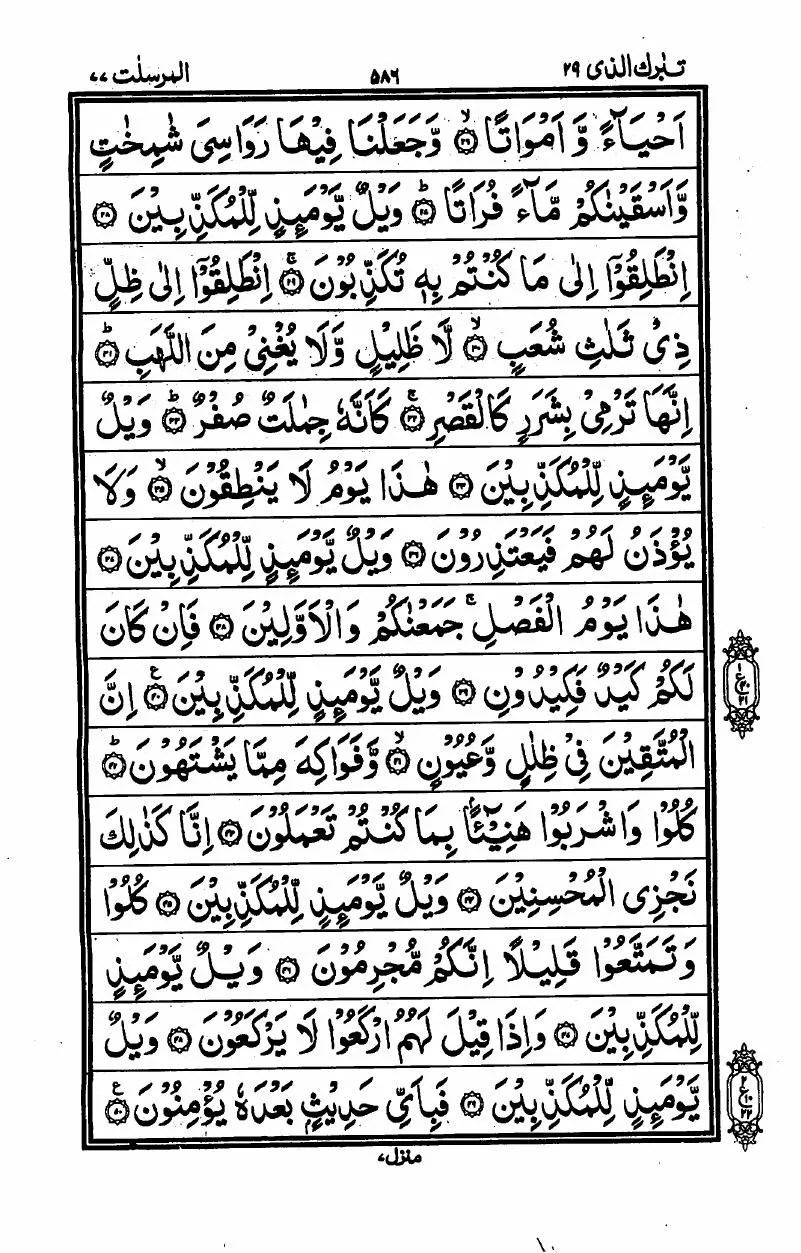 تبٰرك الذی ۲۹ ۵۸۶ المرسلٰت ۷۷
اَحْیَآءً وَّ اَمْوَاتًا ۙ﴿۲۶﴾ وَّجَعَلْنَا فِیْهَا رَوَاسِیَ شٰمِخٰتٍ
وَّاَسْقَیْنٰكُمْ مَّآءً فُرَاتًا ؕ﴿۲۷﴾ وَیْلٌ یَّوْمَىِٕذٍ لِّلْمُكَذِّبِیْنَ ﴿۲۸﴾
اِنْطَلِقُوْۤا اِلٰی مَا كُنْتُمْ بِهٖ تُكَذِّبُوْنَ ۚ﴿۲۹﴾ اِنْطَلِقُوْۤا اِلٰی ظِلٍّ
ذِیْ ثَلٰثِ شُعَبٍ ۙ﴿۳۰﴾ لَّا ظَلِیْلٍ وَّلَا یُغْنِیْ مِنَ اللَّهَبِ ؕ﴿۳۱﴾
اِنَّهَا تَرْمِیْ بِشَرَرٍ كَالْقَصْرِ ۚ﴿۳۲﴾ كَاَنَّهٗ جِمٰلَتٌ صُفْرٌ ؕ﴿۳۳﴾ وَیْلٌ
یَّوْمَىِٕذٍ لِّلْمُكَذِّبِیْنَ ﴿۳۴﴾ هٰذَا یَوْمُ لَا یَنْطِقُوْنَ ۙ﴿۳۵﴾ وَلَا
یُؤْذَنُ لَهُمْ فَیَعْتَذِرُوْنَ ﴿۳۶﴾ وَیْلٌ یَّوْمَىِٕذٍ لِّلْمُكَذِّبِیْنَ ﴿۳۷﴾
هٰذَا یَوْمُ الْفَصْلِ ۚ جَمَعْنٰكُمْ وَالْاَوَّلِیْنَ ﴿۳۸﴾ فَاِنْ كَانَ
لَكُمْ كَیْدٌ فَكِیْدُوْنِ ﴿۳۹﴾ وَیْلٌ یَّوْمَىِٕذٍ لِّلْمُكَذِّبِیْنَ ﴿۴۰﴾ ع اِنَّ
الْمُتَّقِیْنَ فِیْ ظِلٰلٍ وَّعُیُوْنٍ ۙ﴿۴۱﴾ وَّفَوَاكِهَ مِمَّا یَشْتَهُوْنَ ؕ﴿۴۲﴾
كُلُوْا وَاشْرَبُوْا هَنِیْٓـًٔۢا بِمَا كُنْتُمْ تَعْمَلُوْنَ ﴿۴۳﴾ اِنَّا كَذٰلِكَ
نَجْزِی الْمُحْسِنِیْنَ ﴿۴۴﴾ وَیْلٌ یَّوْمَىِٕذٍ لِّلْمُكَذِّبِیْنَ ﴿۴۵﴾ كُلُوْا
وَتَمَتَّعُوْا قَلِیْلًا اِنَّكُمْ مُّجْرِمُوْنَ ﴿۴۶﴾ وَیْلٌ یَّوْمَىِٕذٍ
لِّلْمُكَذِّبِیْنَ ﴿۴۷﴾ وَاِذَا قِیْلَ لَهُمُ ارْكَعُوْا لَا یَرْكَعُوْنَ ﴿۴۸﴾ وَیْلٌ
یَّوْمَىِٕذٍ لِّلْمُكَذِّبِیْنَ ﴿۴۹﴾ فَبِاَیِّ حَدِیْثٍۭ بَعْدَهٗ یُؤْمِنُوْنَ ﴿۵۰﴾ ع
منزل ۷